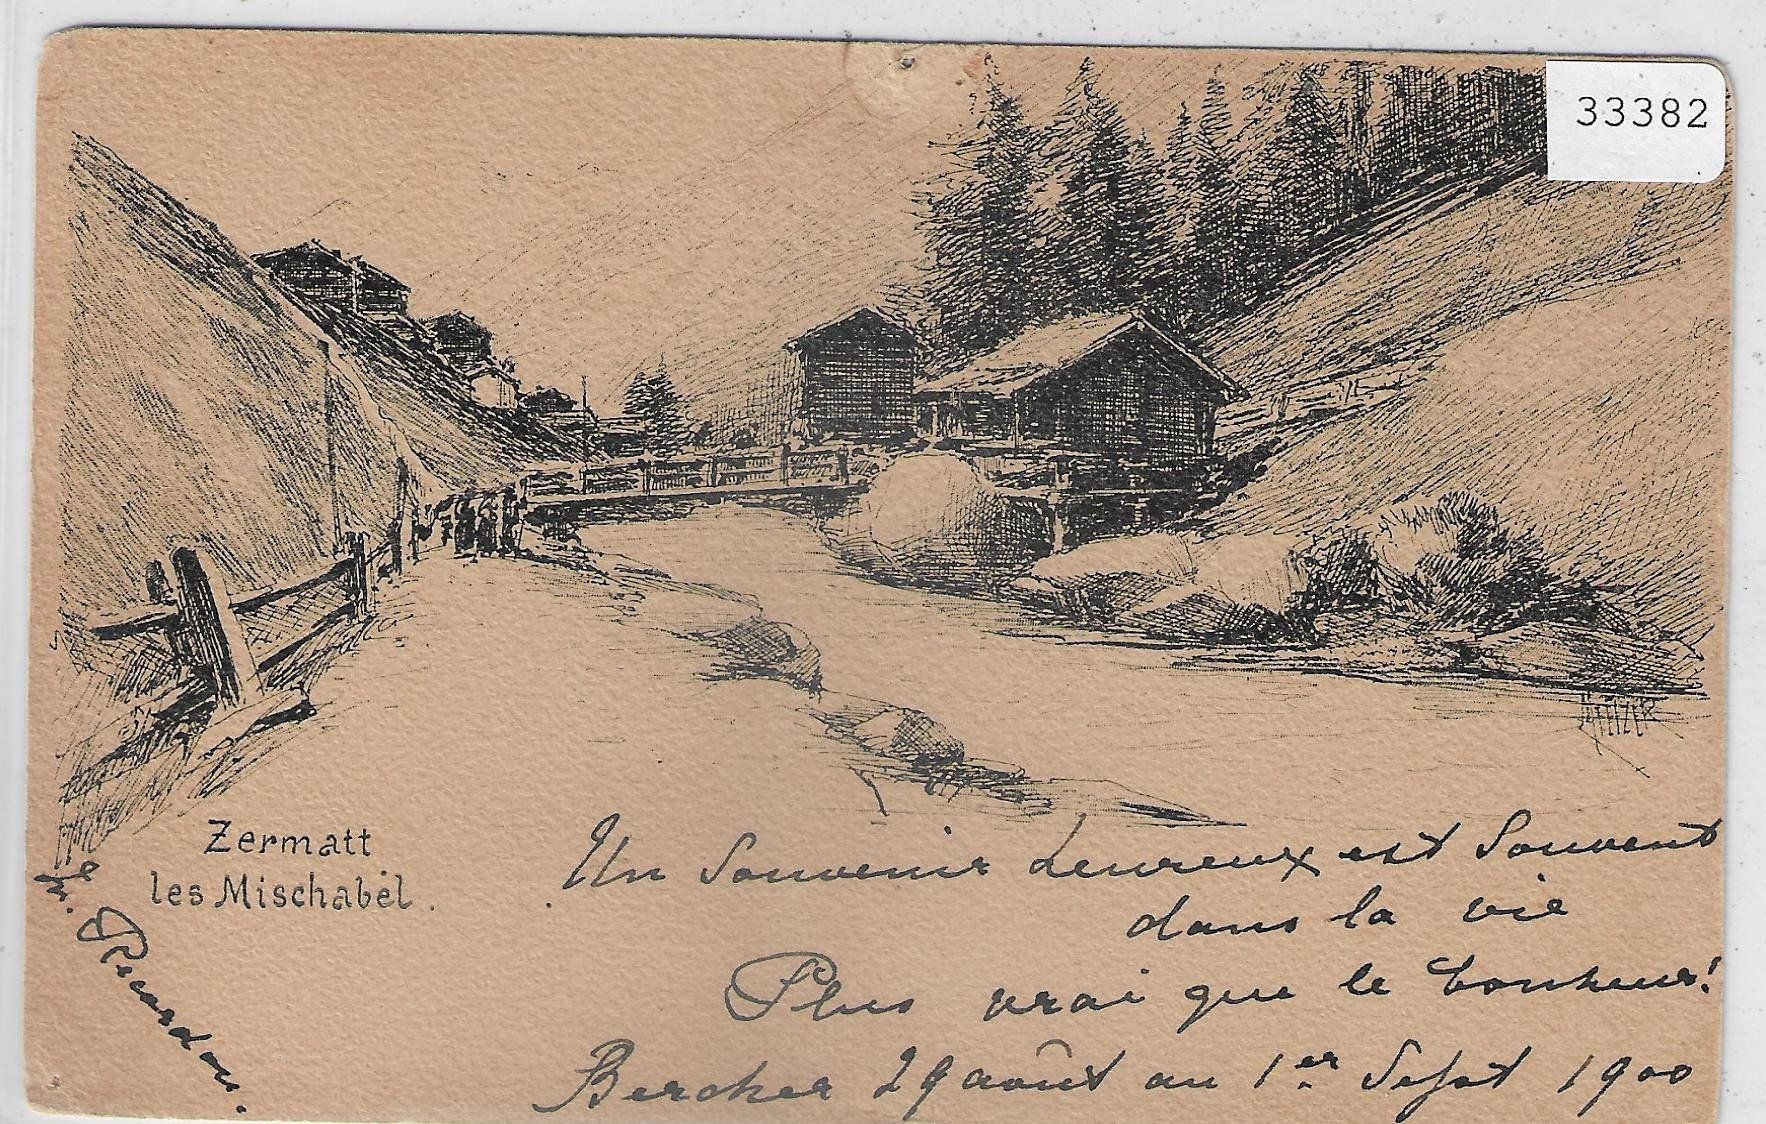 33382
Zermatt
les Mischabél.
Un Souvenir heureux est Souvent
dans la vie
Plus vrai que le bonheur!
Bercher 29 août au 1er Sept 1900